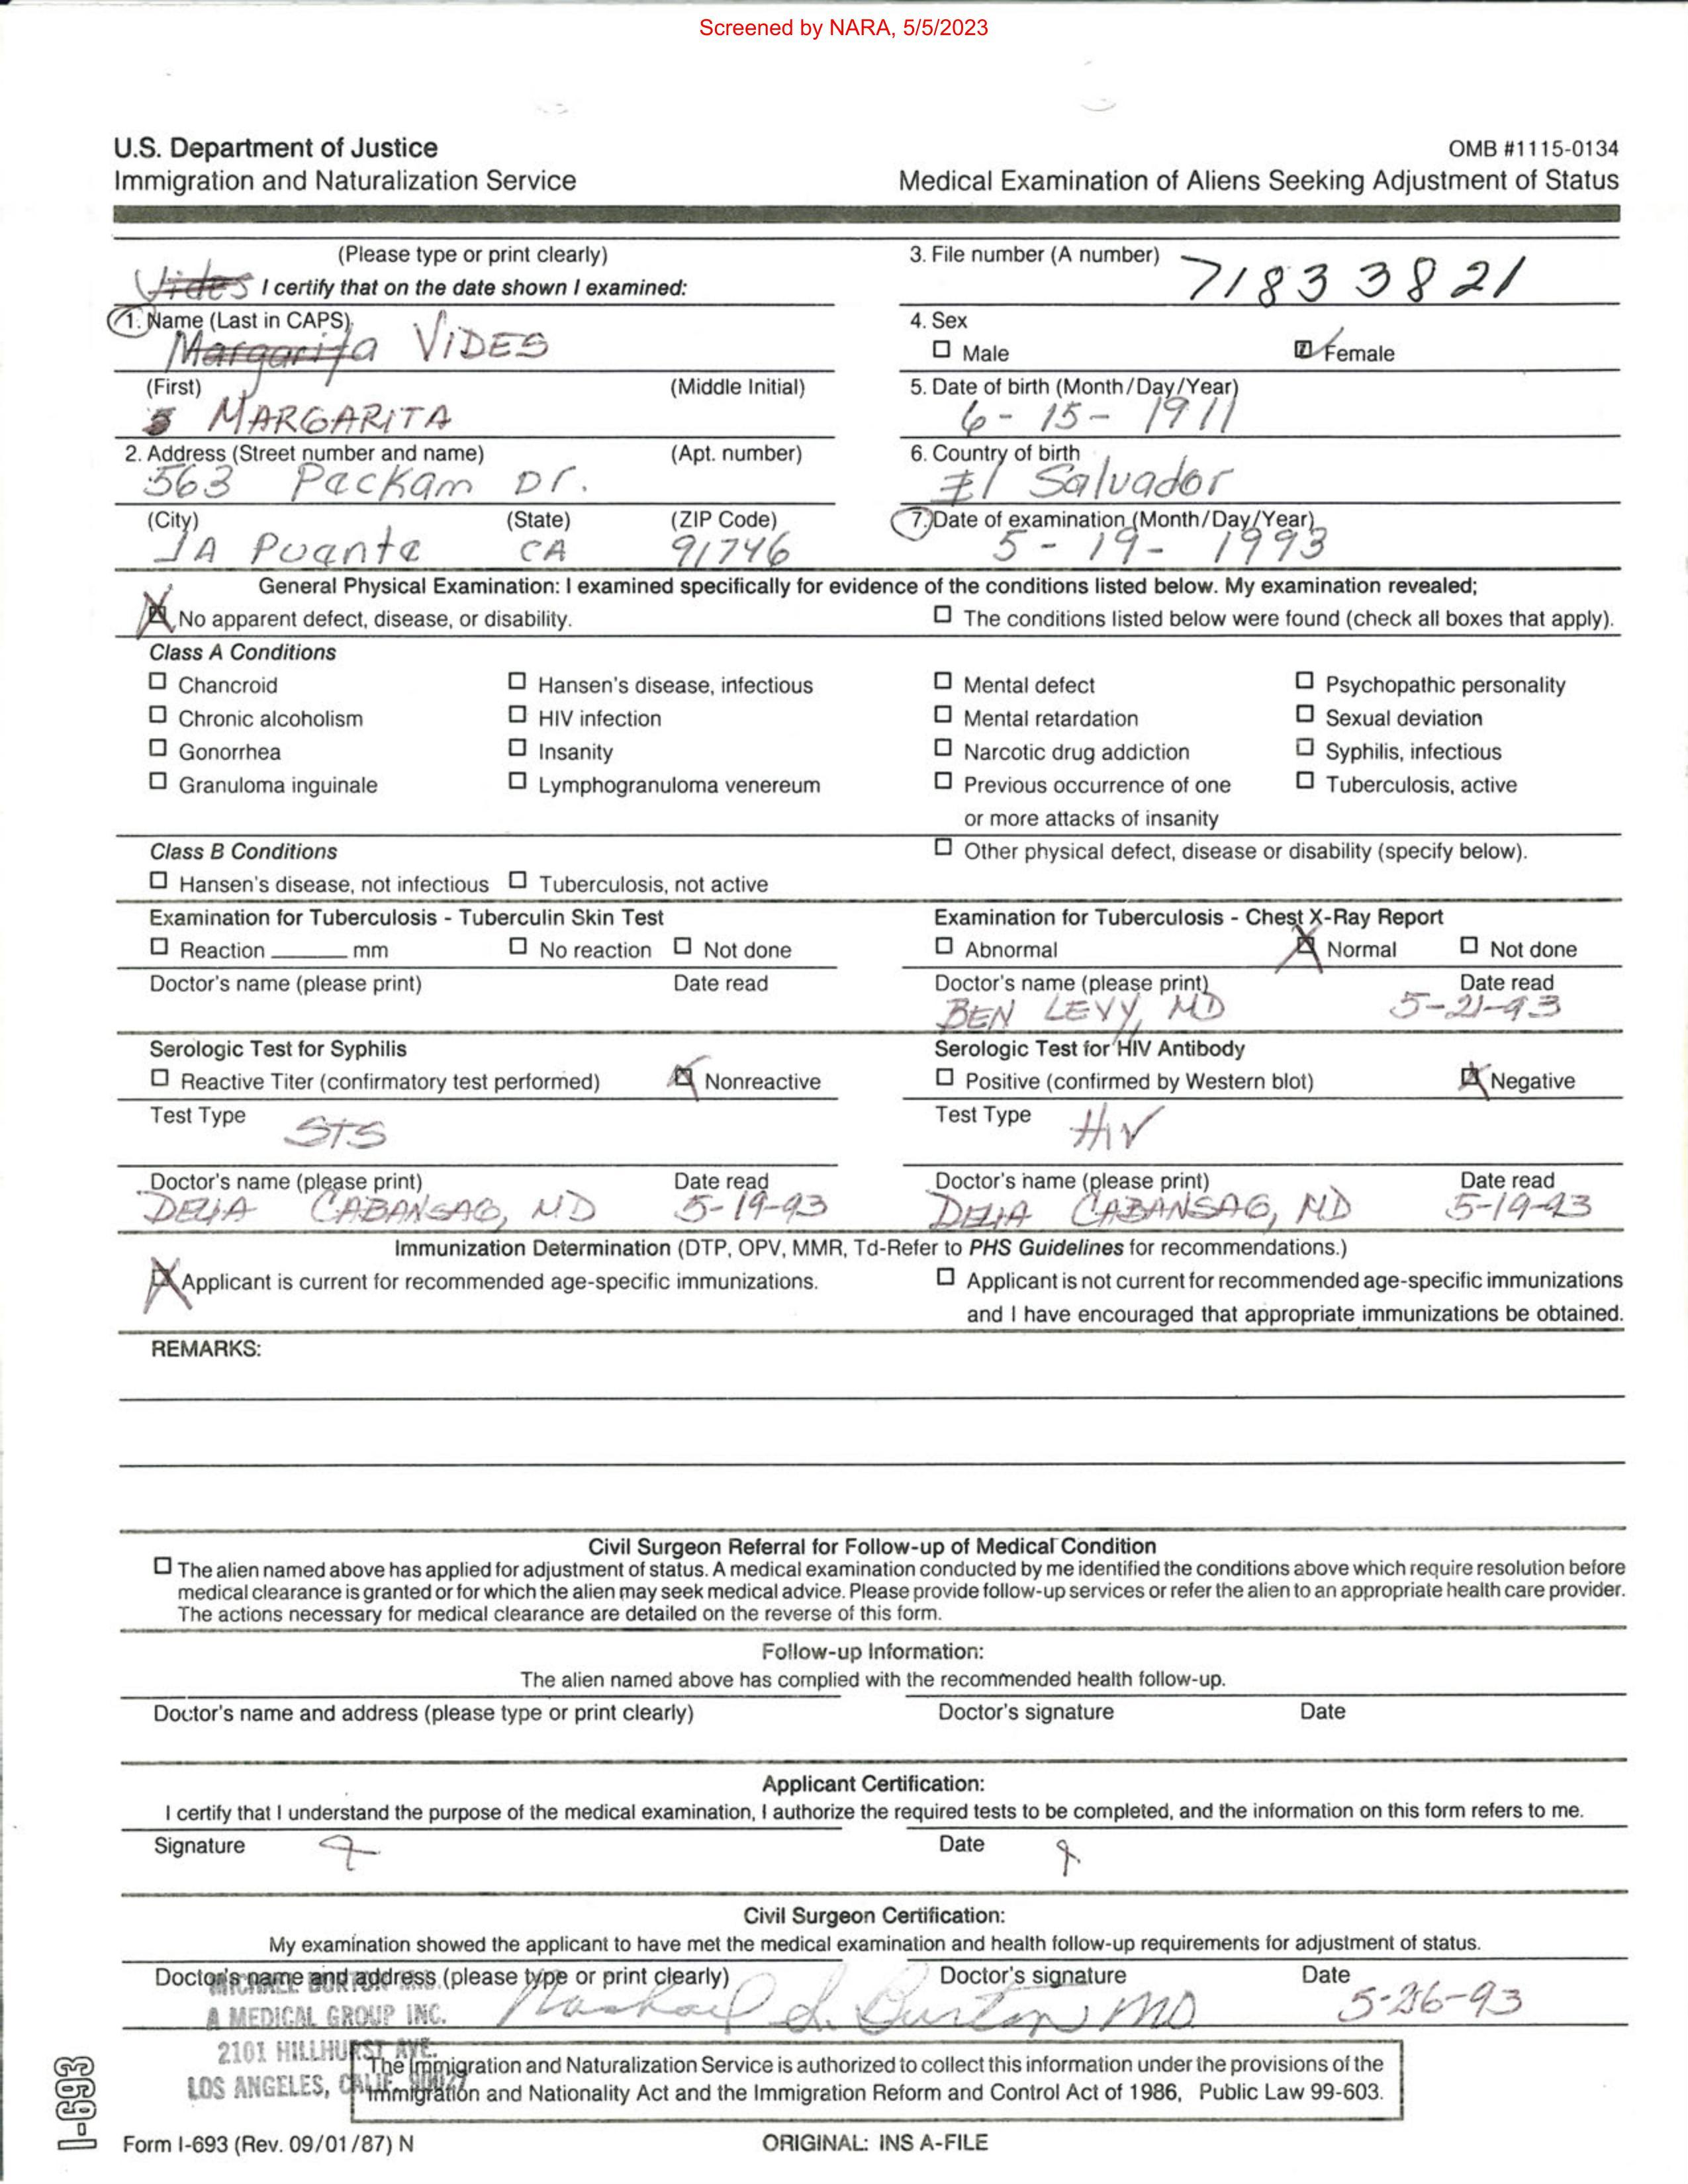 Screened by NARA, 5/5/2023
U.S. Department of Justice
Immigration and Naturalization Service
OMB #1115-0134
Medical Examination of Aliens Seeking Adjustment of Status
(Please type or print clearly)
Vides I certify that on the date shown I examined:
1. Name (Last in CAPS)
Margarita VIDES
(First) (Middle Initial)
MARGARITA
2. Address (Street number and name) (Apt. number)
563 Packam Dr.
(City) (State) (ZIP Code)
LA Puante CA 91746
3. File number (A number) 71833821
4. Sex
Male Female
5. Date of birth (Month/Day/Year)
6-15-1911
6. Country of birth
El Salvador
7. Date of examination (Month/Day/Year)
5-19-1993
General Physical Examination: I examined specifically for evidence of the conditions listed below. My examination revealed;
No apparent defect, disease, or disability. The conditions listed below were found (check all boxes that apply).
Class A Conditions
Chancroid Hansen's disease, infectious Mental defect Psychopathic personality
Chronic alcoholism HIV infection Mental retardation Sexual deviation
Gonorrhea Insanity Narcotic drug addiction Syphilis, infectious
Granuloma inguinale Lymphogranuloma venereum Previous occurrence of one Tuberculosis, active
or more attacks of insanity
Class B Conditions Other physical defect, disease or disability (specify below).
Hansen's disease, not infectious Tuberculosis, not active
Examination for Tuberculosis - Tuberculin Skin Test
Reaction ______ mm No reaction Not done
Doctor's name (please print) Date read
Examination for Tuberculosis - Chest X-Ray Report
Abnormal Normal Not done
Doctor's name (please print) Date read
BEN LEVY, MD 5-21-93
Serologic Test for Syphilis
Reactive Titer (confirmatory test performed) Nonreactive
Test Type STS
Doctor's name (please print) Date read
DELIA CABANSAG, MD 5-19-93
Serologic Test for HIV Antibody
Positive (confirmed by Western blot) Negative
Test Type HIV
Doctor's name (please print) Date read
DELIA CABANSAG, MD 5-19-93
Immunization Determination (DTP, OPV, MMR, Td-Refer to PHS Guidelines for recommendations.)
Applicant is current for recommended age-specific immunizations. Applicant is not current for recommended age-specific immunizations
and I have encouraged that appropriate immunizations be obtained.
REMARKS:
Civil Surgeon Referral for Follow-up of Medical Condition
The alien named above has applied for adjustment of status. A medical examination conducted by me identified the conditions above which require resolution before
medical clearance is granted or for which the alien may seek medical advice. Please provide follow-up services or refer the alien to an appropriate health care provider.
The actions necessary for medical clearance are detailed on the reverse of this form.
Follow-up Information:
The alien named above has complied with the recommended health follow-up.
Doctor's name and address (please type or print clearly) Doctor's signature Date
Applicant Certification:
I certify that I understand the purpose of the medical examination, I authorize the required tests to be completed, and the information on this form refers to me.
Signature Date
Civil Surgeon Certification:
My examination showed the applicant to have met the medical examination and health follow-up requirements for adjustment of status.
Doctor's name and address (please type or print clearly) Doctor's signature Date
MICHAEL BURTON
A MEDICAL GROUP INC.
2101 HILLHURST AVE.
LOS ANGELES, CALIF. 90027
Michael S. Burton MD 5-26-93
The Immigration and Naturalization Service is authorized to collect this information under the provisions of the
Immigration and Nationality Act and the Immigration Reform and Control Act of 1986, Public Law 99-603.
I-693
Form I-693 (Rev. 09/01/87) N ORIGINAL: INS A-FILE